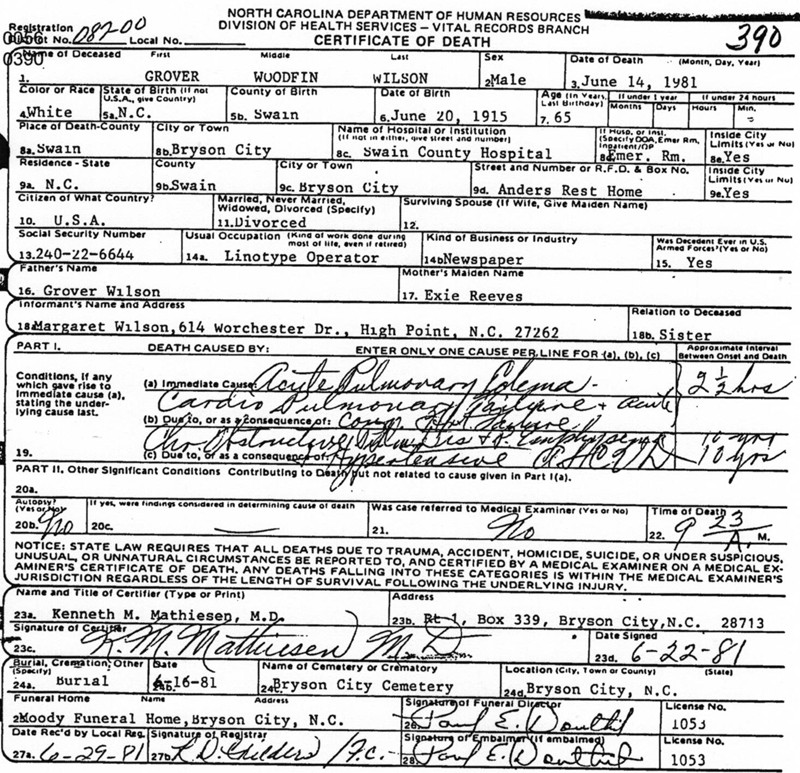 NORTH CAROLINA DEPARTMENT OF HUMAN RESOURCES
DIVISION OF HEALTH SERVICES – VITAL RECORDS BRANCH
CERTIFICATE OF DEATH
390
Registration
District No. 082-00 Local No.
0056
0390
Name of Deceased First Middle Last Sex Date of Death (Month, Day, Year)
1. GROVER WOODFIN WILSON 2. Male 3. June 14, 1981
Color or Race State of Birth (If not U.S.A., give Country) County of Birth Date of Birth Age (In Years, Last Birthday) If under 1 year If under 24 hours
Months Days Hours Min.
4. White 5a. N.C. 5b. Swain 6. June 20, 1915 7. 65
Place of Death-County City or Town Name of Hospital or Institution (If not in either, give street and number) If Hosp. or Inst. (Specify DOA, Emer Rm, Inpatient/OP Inside City Limits (Yes or No)
8a. Swain 8b. Bryson City 8c. Swain County Hospital 8d. Emer. Rm. 8e. Yes
Residence - State County City or Town Street and Number or R.F.D. & Box No. Inside City Limits (Yes or No)
9a. N.C. 9b. Swain 9c. Bryson City 9d. Anders Rest Home 9e. Yes
Citizen of What Country? Married, Never Married, Widowed, Divorced (Specify) Surviving Spouse (If Wife, Give Maiden Name)
10. U.S.A. 11. Divorced 12.
Social Security Number Usual Occupation (Kind of work done during most of life, even if retired) Kind of Business or Industry Was Decedent Ever in U.S. Armed Forces? (Yes or No)
13. 240-22-6644 14a. Linotype Operator 14b Newspaper 15. Yes
Father's Name Mother's Maiden Name
16. Grover Wilson 17. Exie Reeves
Informant's Name and Address Relation to Deceased
18a Margaret Wilson, 614 Worchester Dr., High Point, N.C. 27262 18b. Sister
PART I. DEATH CAUSED BY: ENTER ONLY ONE CAUSE PER LINE FOR (a), (b), (c) Approximate Interval Between Onset and Death
Conditions, if any which gave rise to immediate cause (a), stating the underlying cause last.
(a) Immediate Cause Acute Pulmonary Edema 2 1/2 hrs
Cardio Pulmonary Failure + acute
(b) Due to, or as a consequence of: Cong Hrt Failure
Chr Obstructive & Emphysema 10 yrs
19. (c) Due to, or as a consequence of: Hypertensive ASHCVD 10 yrs
PART II. Other Significant Conditions Contributing to Death but not related to cause given in Part I(a).
20a.
Autopsy? (Yes or No) If yes, were findings considered in determining cause of death Was case referred to Medical Examiner (Yes or No) Time of Death
20b. No 20c. 21. No 22. 9 23 A. M.
NOTICE: STATE LAW REQUIRES THAT ALL DEATHS DUE TO TRAUMA, ACCIDENT, HOMICIDE, SUICIDE, OR UNDER SUSPICIOUS,
UNUSUAL, OR UNNATURAL CIRCUMSTANCES BE REPORTED TO, AND CERTIFIED BY A MEDICAL EXAMINER ON A MEDICAL EX-
AMINER'S CERTIFICATE OF DEATH. ANY DEATHS FALLING INTO THESE CATEGORIES IS WITHIN THE MEDICAL EXAMINER'S
JURISDICTION REGARDLESS OF THE LENGTH OF SURVIVAL FOLLOWING THE UNDERLYING INJURY.
Name and Title of Certifier (Type or Print) Address
23a. Kenneth M. Mathiesen, M.D. 23b. Rt 1, Box 339, Bryson City, N.C. 28713
Signature of Certifier Date Signed
23c. K. M. Mathiesen M.D. 23d. 6-22-81
Burial, Cremation, Other (Specify) Date Name of Cemetery or Crematory Location (City, Town or County) (State)
24a. Burial 24b. 6-16-81 24c. Bryson City Cemetery 24d. Bryson City, N.C.
Funeral Home Name Address Signature of Funeral Director License No.
25. Moody Funeral Home, Bryson City, N.C. 26. Paul E. Douthit 1053
Date Rec'd by Local Reg. Signature of Registrar Signature of Embalmer (If embalmed) License No.
27a. 6-29-81 27b. R. D. Childers /F.C. 28. Paul E. Douthit 1053